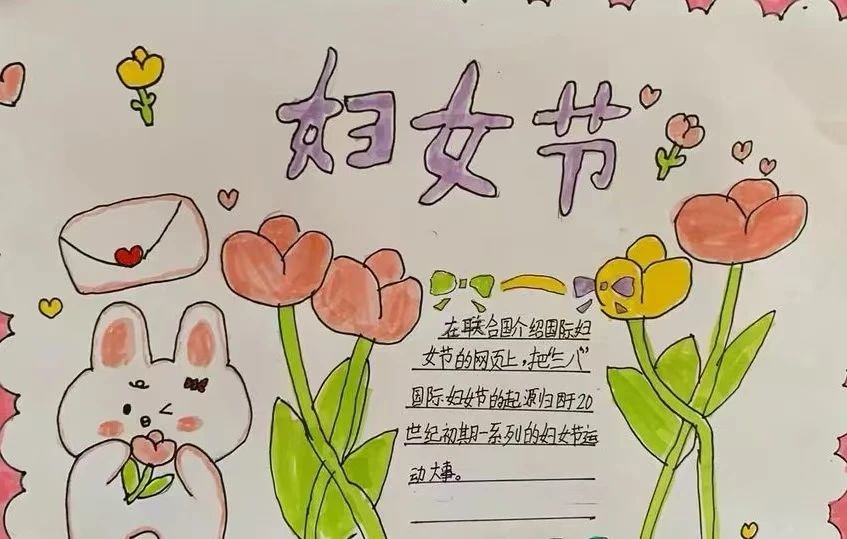 妇女节
在联合国介绍国际妇
女节的网页上,把“三八”
国际妇女节的起源归因于20
世纪初期一系列的妇女节运
动大事。